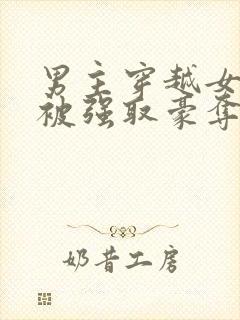 男主穿越女
被强取豪夺
奶昔工房